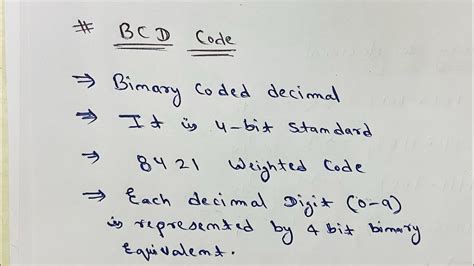 # BCD Code
⇒ Binary Coded decimal
⇒ It is 4-bit Standard
⇒ 8421 Weighted Code
⇒ Each decimal Digit (0-9)
is represented by 4 bit binary
Equivalent.